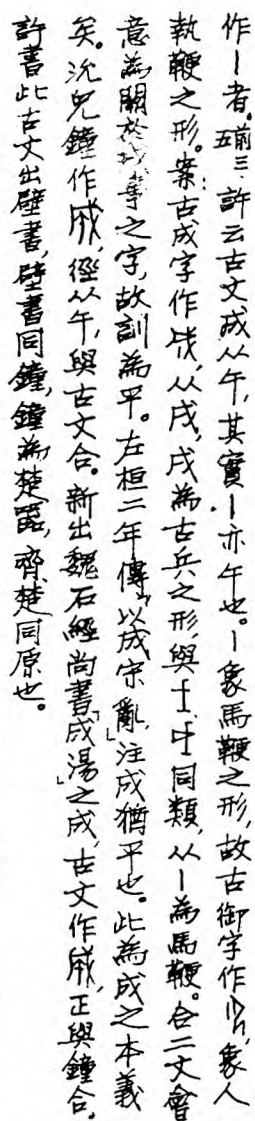 作丨者。五前三.許云古文成从午,其實丨亦午也。丨象馬鞭之形,故古御字作,象人
執鞭之形。案:古成字作戌,从戌,戌為古兵之形,與十、屮同類,从丨為馬鞭。合二文會
意為關於戰爭之字,故訓為平。左桓二年傳「以成宋亂」,注成猶平也。此為成之本義
矣。沇兒鐘作,徑从午,與古文合。新出魏石經尚書「成湯」之成,古文作,正與鐘合。
許書此古文出壁書,壁書同鐘,鐘為楚器,齊楚同原也。